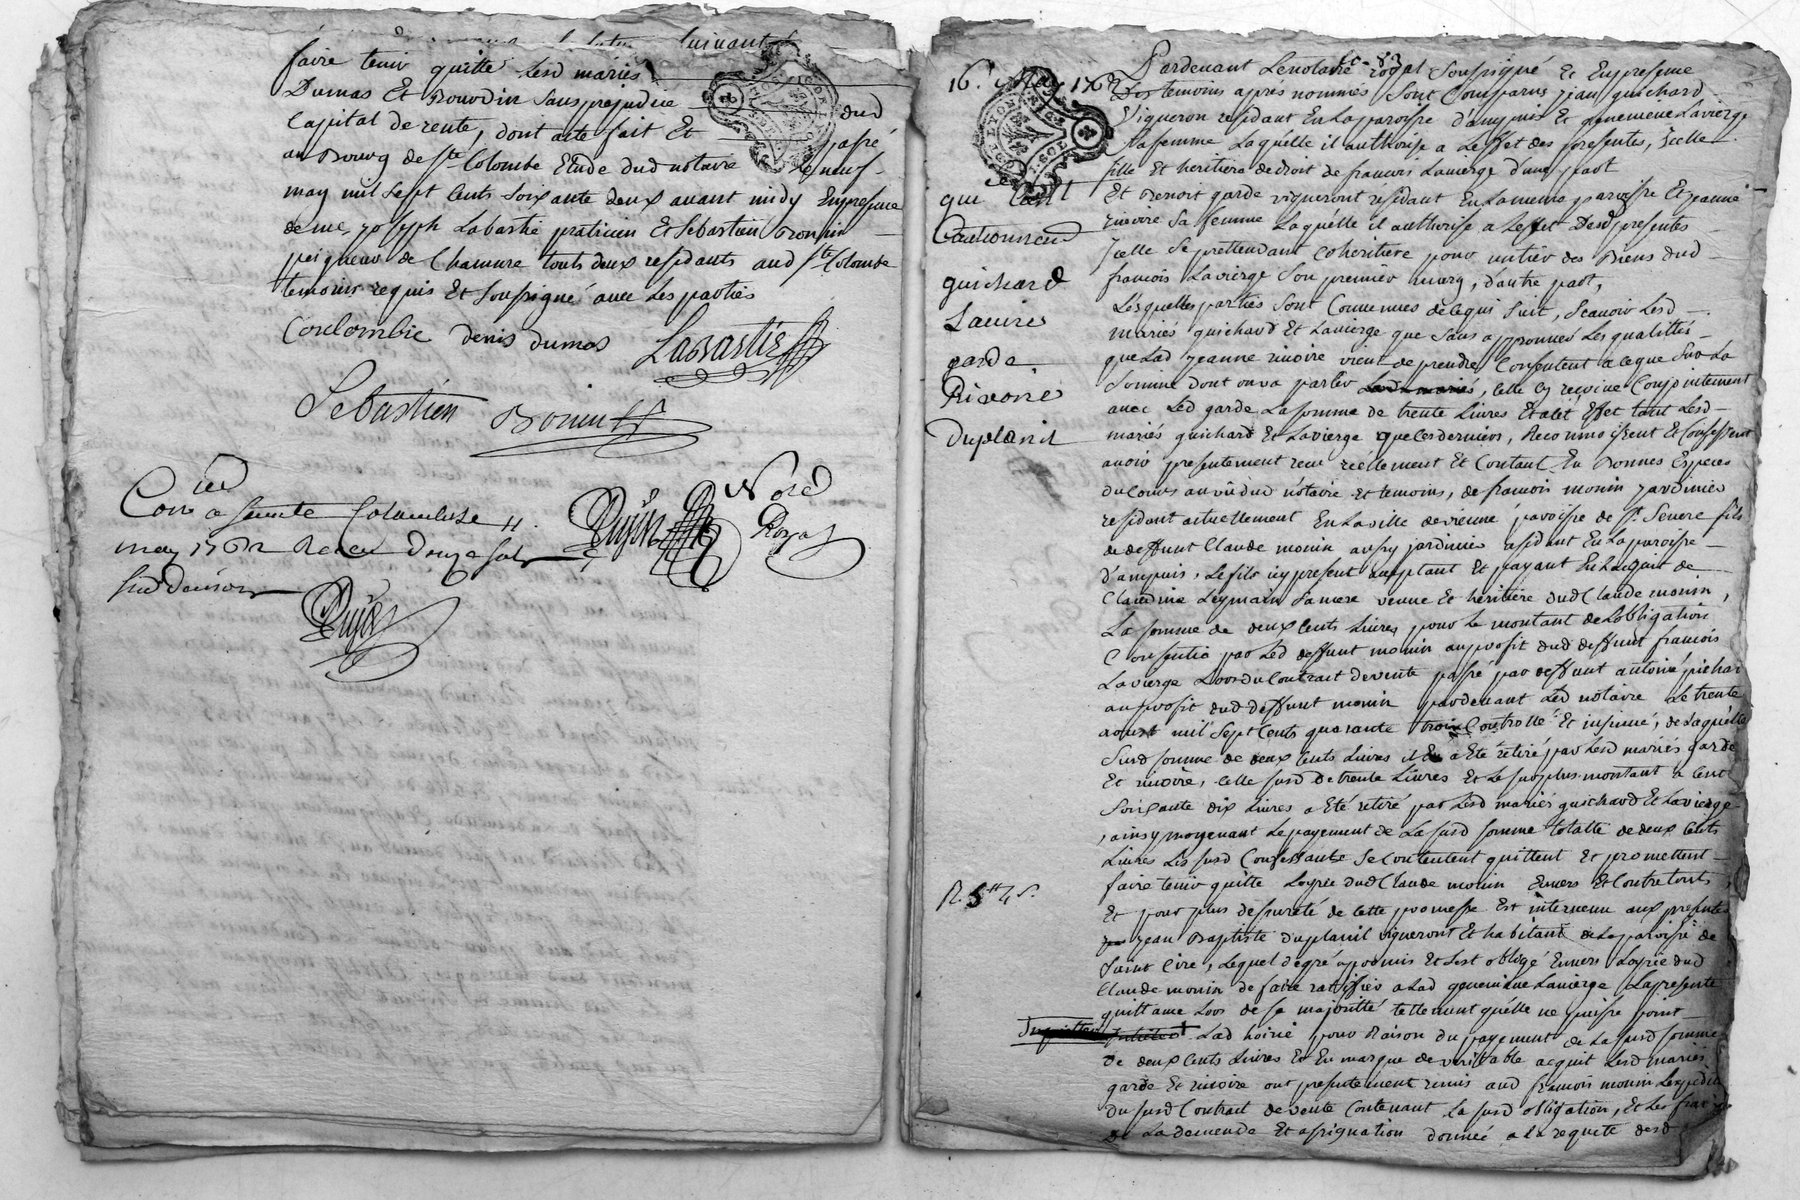 faire tenir quitte Lesd mariés
Dumas Et Bourdin sans prejudice dud
Capital de rente, dont acte fait Et passé
au Bourg de Ste Colombe Etude dud notaire Le neuf
may mil sept Cents soixante deux avant midy En presence
de me joseph Labastie praticien Et Sébastien Bonnin
peigneur de Chanvre touts deux residants aud Ste Colombe
temoins requis Et soussigné avec Les parties
Coulombie denis dumas Labastie
Sebastien Bonin
Con a sainte Colombe 11
may 1762 Receu Douze sols
Dujas
Nore
Royal
Dujas
16e May 1762
quittance
Cautionnemt
guichard
Lavirer
garde
Rivoire
duplanil
R. 5tt 4s.
Pardevant Le notaire royal soussigné Et En presence
Des temoins apres nommés sont Comparus jean guichard
Vigneron residant En La paroisse d'ampuis Et genevieve Lavierge
sa femme Laquelle il authorise a L'effet des presentes, jcelle
fille Et heritiere de droit de francois Lavierge d'une part
Et Benoit garde vigneront residant En La meme paroisse Et jeanne
rivoire sa femme Laquelle il authorise a Leffet Desd presentes
jcelle se prettendant Coheritiere pour un tier des Biens dud
francois Lavierge son premier mary, d'autre part,
Lesquelles parties sont Convenues de ce qui suit, scavoir Lesd
mariés guichard Et Lavierge que sans approuver Les qualittés
que Lad jeanne rivoire vient de prendre Consentent a ce que sur La
somme dont on va parler, Celle cy reçoive Conjointement
avec Led garde La somme de trente Livres Et a cet Effet tant Lesd
mariés guichard Et Lavierge que Ces derniers, Reconnoissent Et Confessent
avoir presentement receu réellement Et Contant En Bonnes Especes
du Cours au vû dud notaire et temoins, de francois monin jardinier
residant actuellement En La ville de vienne paroisse de St. Severe fils
de deffunt Claude monin aussy jardinier residant En La paroisse
d'ampuis, Le fils icy present acceptant Et payant En L'acquit de
Claudine Leymain sa mere veuve Et héritière dud Claude monin,
La somme de deux Cents Livres pour Le montant de L'obligation
Consentie par Led deffunt monin au profit dud deffunt francois
Lavierge Lors du Contrait de vente passé par deffunt antoine pichat
au profit dud deffunt monin pardevant Led notaire Le trente
aoust mil sept Cents quarante trois Controllé Et insinué, de Laquelle
susd somme de deux Cents Livres il En a Eté retiré par Lesd mariés garde
Et rivoire, Celle susd de trente Livres Et Le surplus montant a Cent
soixante dix Livres a Eté retiré par Lesd mariés guichard Et Lavierge
, ainsy moyenant Le payement de La susd somme totalle de deux Cents
Livres Les susd Confessants se Contentent quittent Et promettent
faire tenir quitte Loyrie dud Claude monin Envers Et Contre touts,
Et pour plus de sureté de Cette promesse Est intervenu aux presentes
jean Baptiste duplanil vigneront Et habitant de La paroisse de
saint Cire, Lequel de gré a promis Et s'est obligé Envers Loyrie dud
Claude monin de faire ratiffier a Lad genevieve Lavierge La presente
quittance Lors de sa majoritté tellement qu'elle ne puisse point
Inquietter Lad hoirie pour Raison du payement de La susd somme
de deux Cents Livres Et En marque de veritable acquit Lesd mariés
garde Et rivoire ont presentement remis aud francois monin L'expedition
du susd Contrait de vente Contenant La susd obligation, Et Les frais
de La demende Et assignation donnée a La requete desd